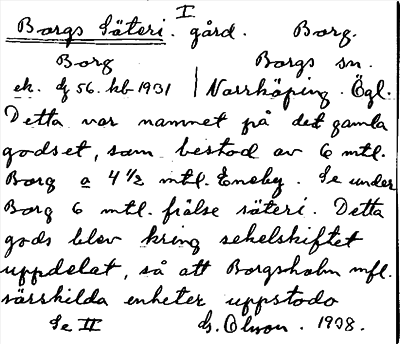 I
Borgs Säteri. gård. Borg.
Borg Borgs sn.
ek. bl 56. hb 1931 | Norrköping. Ögl.
Detta var namnet på det gamla
godset, som bestod av 6 mtl.
Borg o 4 1/2 mtl. Eneby. Se under
Borg 6 mtl. frälse säteri. Detta
gods blev kring sekelskiftet
uppdelat, så att Borgsholm mfl.
särskilda enheter uppstodo
Se II G. Olsson. 1938.